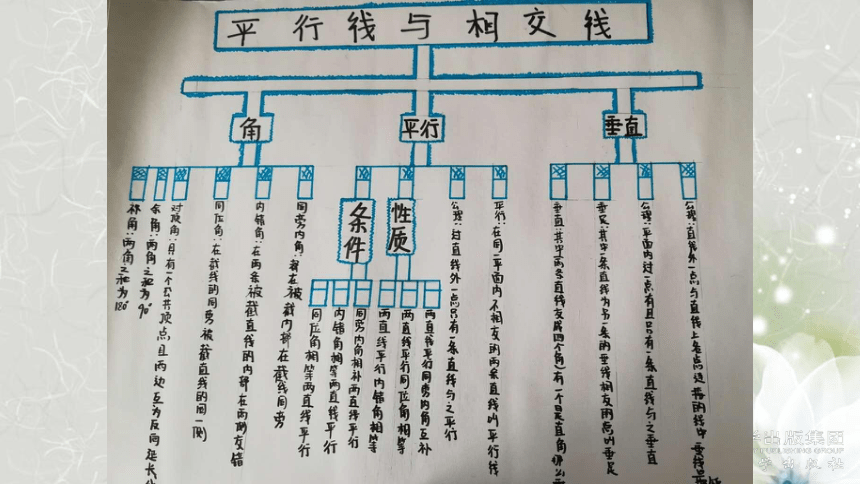 平行线与相交线
角
平行
垂直
补角:两角之和为180°
余角:两角之和为90°
对顶角:具有一个公共顶点且两边互为反向延长
同位角:在截线的同旁被截直线的同一侧
内错角:在两条被截直线的内部在两侧交错
同旁内角:都在被截内部在截线同旁
条件
同位角相等两直线平行
内错角相等两直线平行
同旁内角相补两直线平行
性质
两直线平行内错角相等
两直线平行同位角相等
两直线平行同旁内角互补
公理:过直线外一点只有一条直线与之平行
平行:在同一平面内不相交的两条直线叫平行线
垂直:其中两条直线交成四个角有一个是直角
垂足:其中一条直线为另一条的垂线相交的点叫垂足
公理:平面内过一点有且只有一条直线与之垂直
公理:直线外一点与直线上各点边接的线中垂线
出版集团
PUBLISHING GROUP
出版社